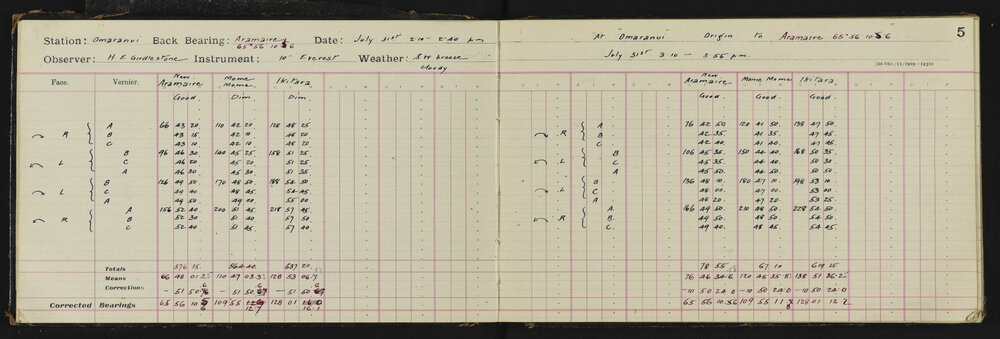 Station: Omaranui Back Bearing: Aramaire 65°56 10 6 Date: July 31st 2·10 - 2·40 p.m
Observer: H E Girdlestone Instrument: 10" Everest Weather: SW breeze cloudy
Face. Vernier. New Aramaire Mome Mome Ikitara
Good. Dim Dim.
R A 66 43 20 110 42 20 128 48 25
B 43 15 42 10 48 20
C 43 10 42 10 48 20
L B 96 46 30 140 45 25 158 51 25
C 46 20 45 20 51 25
A 46 30 45 30 51 35
L B 126 49 50 170 48 50 188 54 50
C 49 40 48 45 54 45
A 49 50 49 00 55 00
R A 156 52 40 200 51 45 218 57 45
B 52 30 51 40 57 50
C 52 40 51 45 57 40
Totals 576 15 564 40 637 20
Means 66 48 01·2 110 47 03·3 128 53 06·7
Corrections - 51 50 - 51 50 - 51 50
Corrected Bearings 65 56 10 109 55 12·7 128 01 16·1
At Omaranui Origin to Aramaire 65°56 10 6 5
July 31st 3·10 - 3·55 p.m
New Aramaire Mome Mome Ikitara
Good. Good. Good.
R A 76 42 50 120 41 50 138 47 50
B 42 35 41 35 47 45
C 42 40 41 40 47 45
L B 106 45 35 150 44 40 168 50 35
C 45 35 44 40 50 30
A 45 50 44 50 50 50
L B 136 48 10 180 47 10 198 53 10
C 48 00 47 00 53 00
A 48 20 47 20 53 25
R A 166 49 50 210 48 50 228 54 50
B 49 50 48 50 54 50
C 49 40 48 45 54 45
78 55 67 10 619 15
76 46 34·6 120 45 35·8 138 51 36·2
- 10 50 24·0 - 10 50 24·0 - 10 50 24·0
65 56 10 6 109 55 11 8 128 01 12 2